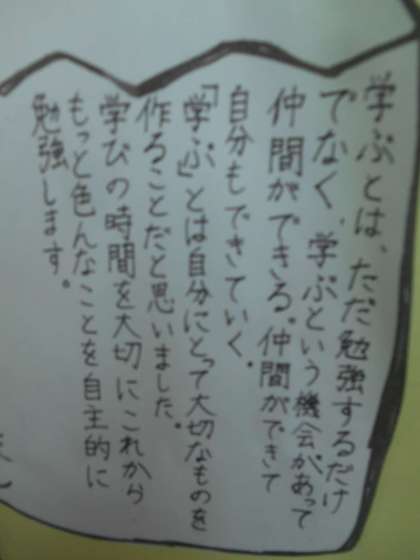 学ぶとは、ただ勉強するだけ
でなく、学ぶという機会があって
仲間ができる。仲間ができて
自分もできていく。
「学ぶ」とは自分にとって大切なものを
作ることだと思いました。
学びの時間を大切にこれから
もっと色んなことを自主的に
勉強します。